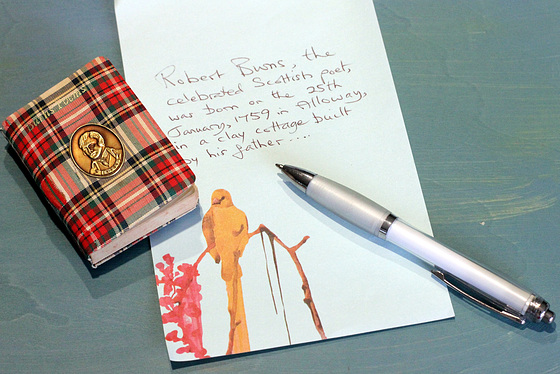 Robert Burns, the
celebrated Scottish poet,
was born on the 25th
January, 1759 in Alloway,
in a clay cottage built
by his father....